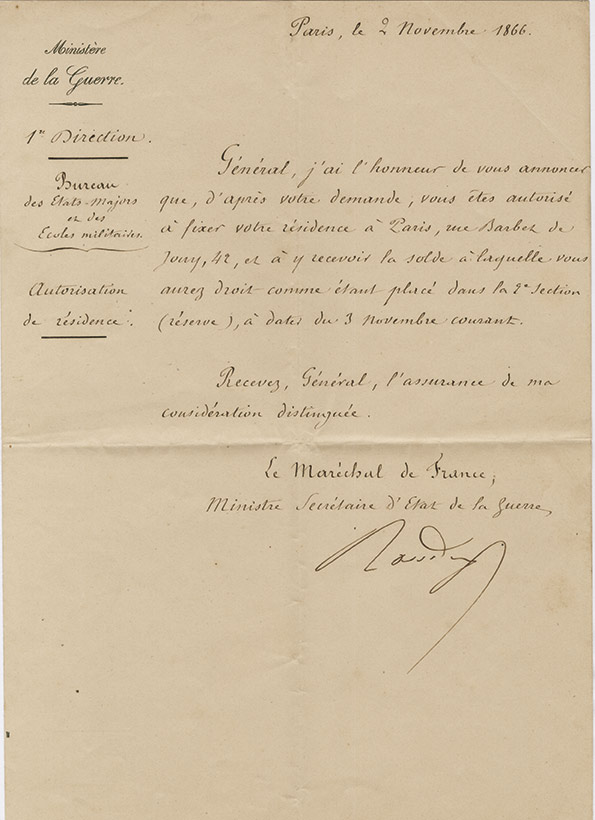 Paris, le 2 Novembre 1866.
Ministère
de la Guerre.
1re Direction.
Bureau
des Etats-Majors
et des
Ecoles militaires.
Autorisation
de résidence.
Général, j'ai l'honneur de vous annoncer
que, d'après votre demande, vous êtes autorisé
à fixer votre résidence à Paris, rue Barbet de
Jouy, 42, et à y recevoir la solde à laquelle vous
aurez droit comme étant placé dans la 2e Section
(réserve), à dater du 3 Novembre courant.
Recevez, Général, l'assurance de ma
considération distinguée.
Le Maréchal de France,
Ministre Secrétaire d'Etat de la Guerre,